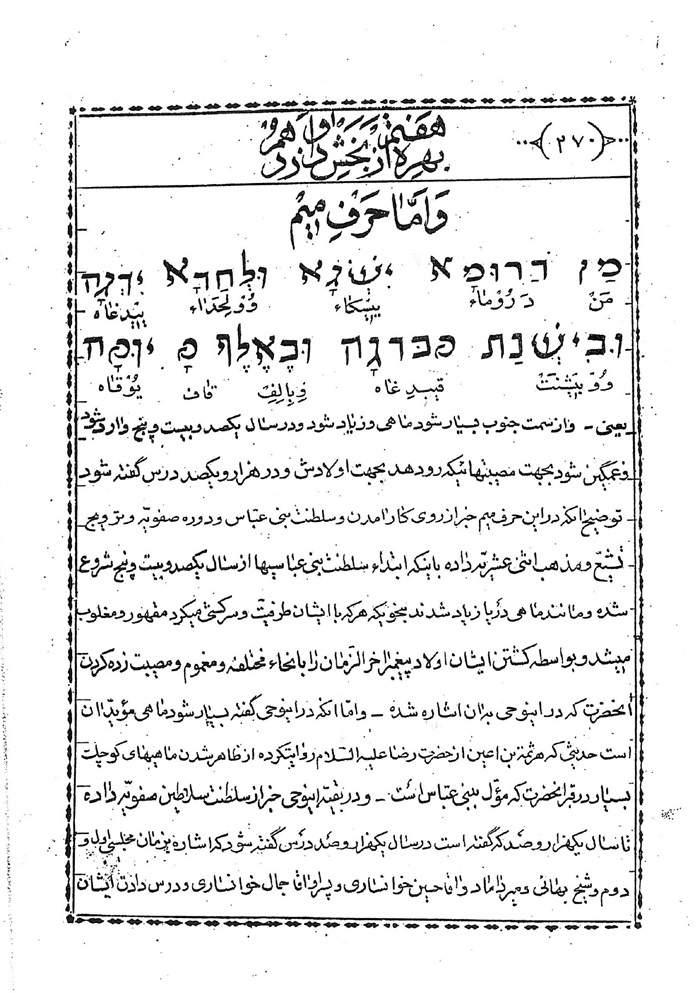 ﴿۲۷۰﴾
هفتم از بخش اول
بهره دوازدهم
و امّا حرف میم
מִן דָרוּמָא יִשְׂגָא וּלְחִדָא יִדְגָה
مَنْ دَرُومٰاء یِسْگاٰء وُولِحَدٰاء یِیدغاٰه
וּבִישְׁנַת קבדגָה וּבְאָלֶף קָ יוּקָה
وُوبِیشْنَتْ قیبدغاٰه وَبِالِفْ قاف یُوْقٰاه
یعنی - و از سمت جنوب بسیار شود ماهی و زیاد شود و در سال یکصد و بیست و پنج وارد شود
و غمگین شود بجهت مصیبتهائیکه رو دهد بجهت اولادش و در هزار و یکصد درس گفته شود
توضیح آنکه در این حرف میم خبر از روی کار آمدن و سلطنت بنی عباس و دوره صفویه و ترویج
تشیّع و مذهب اثنی عشریه داده باینکه ابتداء سلطنت بنی عباسیها از سال یکصد و بیست و پنج شروع
شده و مانند ماهی دریا زیاد شدند بنحویکه هر که با ایشان طرفیت و سرکشی میکرد مقهور و مغلوب
میشد و بواسطه کشتن ایشان اولاد پیغمبر آخر الزمان را بانحاء مختلفه و مغموم و مصیبت زده کردن
آنحضرت که در اینوحی بدان اشاره شده - و امّا آنکه در اینوحی گفته بسیار شود ماهی مؤید آن
است حدیثی که هرثمة بن اعین از حضرت رضا علیه السلام روایتکرده از ظاهر شدن ماهیهای کوچک
بسیار در قبر آنحضرت که مؤل ببنی عباس است - و در بقیه اینوحی خبر از سلطنت سلاطین صفویه داده
تا سال یکهزار و صد که گفته است در سال یکهزار و صد درس گفته شود که اشاره بزمان مجلسی اول و
دوم و شیخ بهائی و میرداماد و آقا حسین خوانساری و پسر او آقا جمال خوانساری و درس دادن ایشان